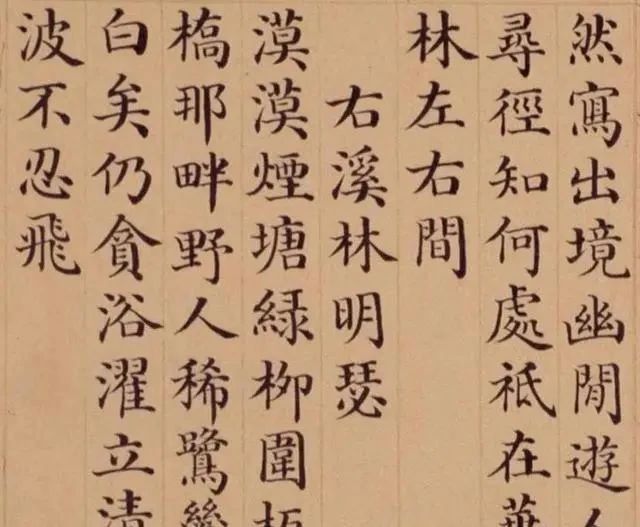 然寫出境幽閒遊人
尋徑知何處祗在華
林左右間
右溪林明瑟
漠漠煙塘綠柳圍
橋那畔野人稀鷺絲
白矣仍貪浴濯立清
波不忍飛